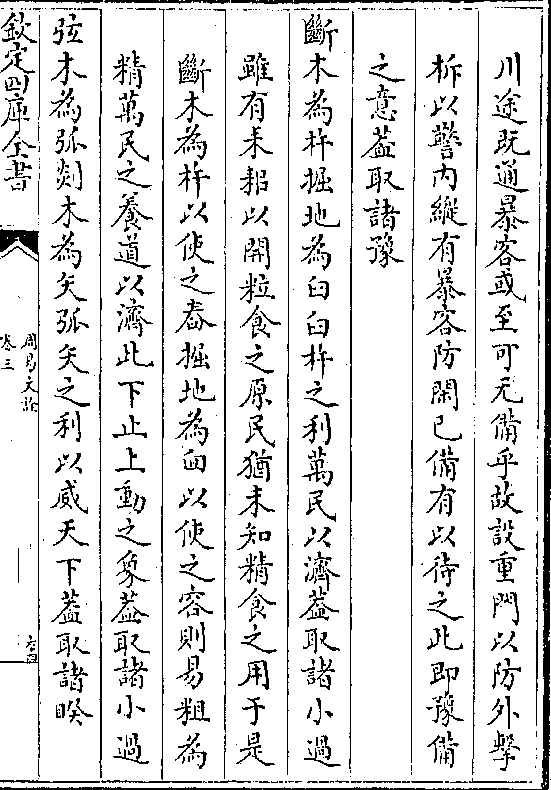 川途既通暴客或至可无備乎故設重門以防外擊
柝以警内縱有暴客防閑已備有以待之此即豫備
之意蓋取諸豫
斷木為杵掘地為臼臼杵之利萬民以濟蓋取諸小過
雖有耒耜以開粒食之原民猶未知精食之用于是
斷木為杵以使之舂掘地為臼以使之容則易粗為
精萬民之養道以濟此下止上動之象蓋取諸小過
弦木為弧剡木為矢弧矢之利以威天下蓋取諸睽
欽定四庫全書
周易文詮
卷三